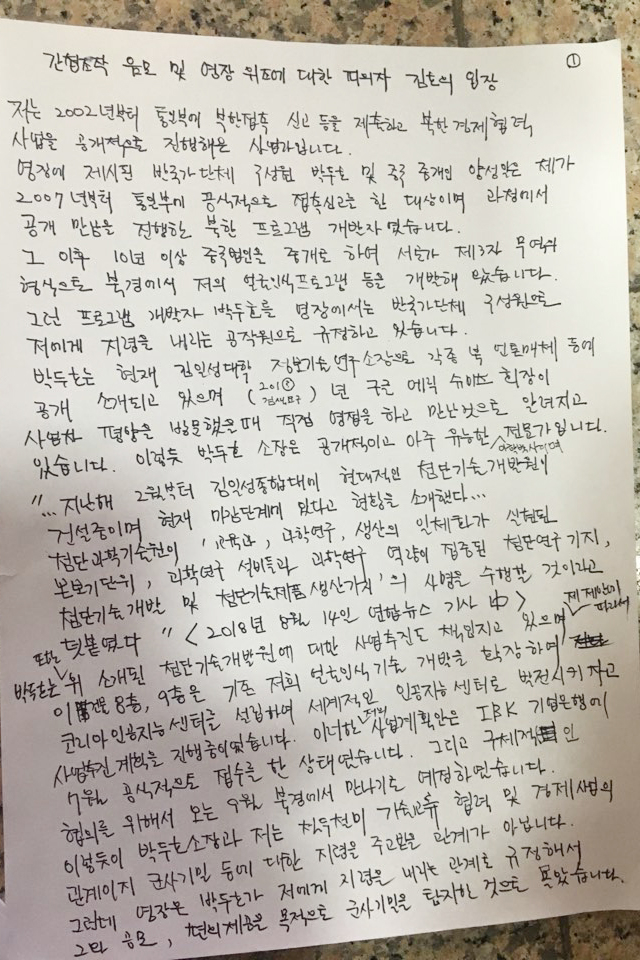 ①
간첩조작 음모 및 영장 위조에 대한 피의자 김호의 입장
저는 2002년부터 통일부에 북한접촉 신고 등을 제출하고 북한경제협력
사업을 공개적으로 진행해온 사업가입니다.
영장에 제시된 반국가단체 구성원 박두호 및 중국 중개인 양성일은 제가
2007년부터 통일부에 공식적으로 접촉신고를 한 대상이며 과정에서
공개 만남을 진행한 북한 프로그램 개발자였습니다.
그 이후 10년 이상 중국법인을 중개로 하여 서로가 제3자 무역의
형식으로 북경에서 저의 얼굴인식프로그램 등을 개발해 왔습니다.
그런 프로그램 개발자 박두호를 영장에서는 반국가단체 구성원으로
저에게 지령을 내리는 공작원으로 규정하고 있습니다.
박두호는 현재 김일성대학 정보기술연구소장으로 각종 북 언론매체 등에
공개 소개되고 있으며 ( ) 년 구글 에릭 슈미츠 회장이
사업차 평양을 방문했을때 직접 영접을 하고 만난것으로 알려지고
있습니다. 이렇듯 박두호 소장은 공개적이고 아주 유능한 전문가입니다.
"... 지난해 2월부터 김일성종합대에 현대적인 첨단기술개발원이
건설중이며 현재 마감단계에 있다고 현황을 소개했다...
첨단과학기술원이 '교육과, 과학연구, 생산의 일체화가 실현된
본보기단위, 과학연구 설비들과 과학연구 역량이 집중된 첨단연구기지,
첨단기술개발 및 첨단기술제품 생산기지'의 사명을 수행할 것이라고
덧붙였다" <2018년 8월 14일 연합뉴스 기사 中>
박두호는 또한 위 소개된 첨단기술개발원에 대한 사업추진도 책임지고 있으며 제 제안에 따라서
이 건물 8층, 9층은 기존 저희 얼굴인식기술 개발을 확장하여
코리아인공지능센터를 설립하여 세계적인 인공지능센터로 발전시키자고
사업추진계획을 진행중이었습니다. 이러한 사업계획안은 IBK 기업은행에
7월 공식적으로 접수를 한 상태였습니다. 그리고 구체적인
협의를 위해서 오는 9월 북경에서 만나기로 예정하였습니다.
이렇듯이 박두호소장과 저는 철두철미 기술교류 협력 및 경제사업의
관계이지 군사기밀 등에 대한 지령을 주고받을 관계가 아닙니다.
그런데 영장은 박두호가 저에게 지령을 내리는 관계로 규정해서
그와 공모, 편의제공을 목적으로 군사기밀을 탐지한 것으로 몰았습니다.